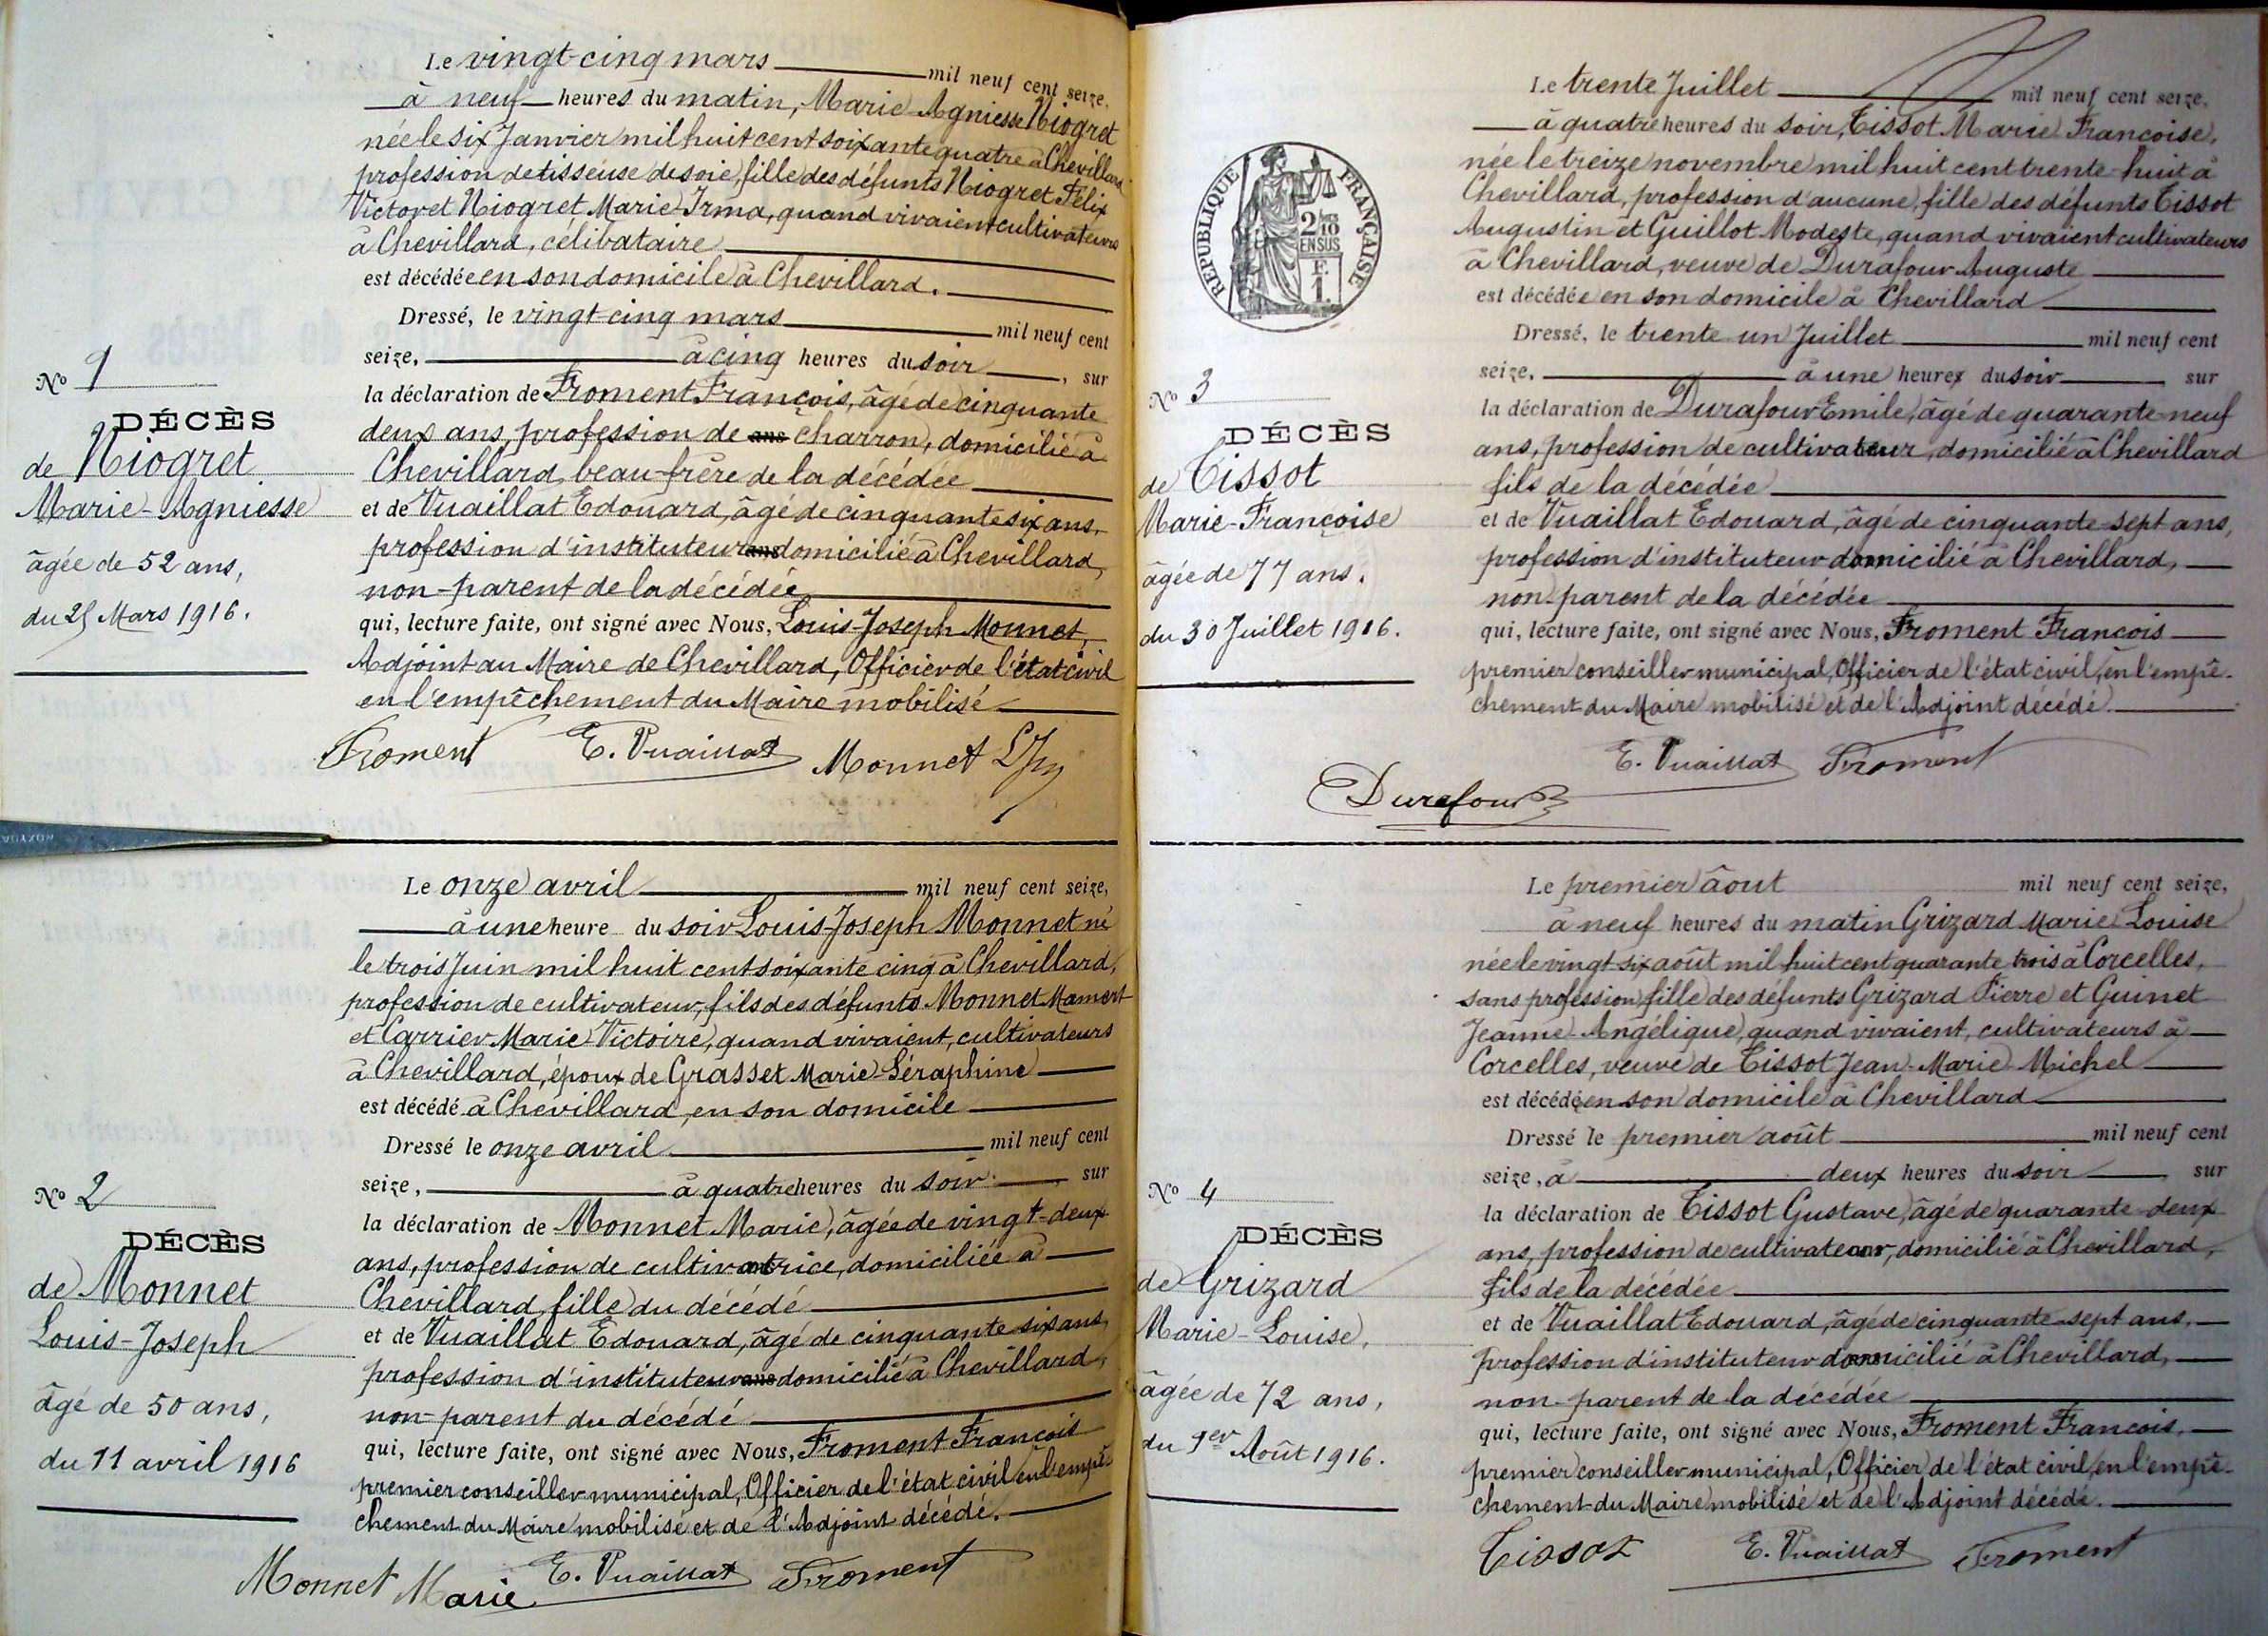 Le vingt-cinq mars mil neuf cent seize,
à neuf heures du matin, Marie-Agniesse Niogret
née le six Janvier mil huit cent soixante quatre à Chevillard
profession de tisseuse de soie, fille des défunts Niogret Félix
Victor et Niogret Marie Irma, quand vivaient cultivateurs
à Chevillard, célibataire
est décédée en son domicile à Chevillard.
Dressé, le vingt-cinq mars mil neuf cent
seize, à cinq heures du soir, sur
No 1
la déclaration de Froment François, âgé de cinquante
DÉCÈS
deux ans, profession de ans charron, domicilié à
de Niogret
Chevillard, beau-frère de la décédée
Marie-Agniesse
et de Vuaillat Edouard, âgé de cinquante six ans,
âgée de 52 ans,
profession d'instituteur ans domicilié à Chevillard,
non-parent de la décédée
du 25 Mars 1916.
qui, lecture faite, ont signé avec Nous, Louis-Joseph Monnet,
Adjoint au Maire de Chevillard, Officier de l'état civil
en l'empêchement du Maire mobilisé
Froment E. Vuaillat Monnet LJ
Le onze avril mil neuf cent seize,
à une heure du soir Louis-Joseph Monnet né
le trois Juin mil huit cent soixante cinq à Chevillard,
profession de cultivateur, fils des défunts Monnet Mamert
et Carrier Marie Victoire, quand vivaient, cultivateurs
à Chevillard, époux de Grasset Marie-Séraphine
est décédé à Chevillard, en son domicile
Dressé le onze avril mil neuf cent
seize, à quatre heures du soir, sur
No 2
la déclaration de Monnet Marie, âgée de vingt-deux
DÉCÈS
ans, profession de cultivatrice, domiciliée à
de Monnet
Chevillard, fille du décédé
Louis-Joseph
et de Vuaillat Edouard, âgé de cinquante six ans,
profession d'instituteur ans domicilié à Chevillard,
âgé de 50 ans,
non-parent du décédé
du 11 avril 1916
qui, lecture faite, ont signé avec Nous, Froment François
premier conseiller municipal, Officier de l'état civil, en l'empê-
chement du Maire mobilisé et de l'Adjoint décédé.
Monnet Marie E. Vuaillat Froment
Le trente Juillet mil neuf cent seize,
à quatre heures du soir, Tissot Marie Françoise,
née le treize novembre mil huit cent trente-huit à
Chevillard, profession d'aucune, fille des défunts Tissot
Augustin et Guillot Modeste, quand vivaient cultivateurs
à Chevillard, veuve de Durafour Auguste
est décédée en son domicile à Chevillard
RÉPUBLIQUE FRANÇAISE
2/10
EN SUS
F.
1.
Dressé, le trente un Juillet mil neuf cent
seize, à une heures du soir sur
No 3
la déclaration de Durafour Emile, âgé de quarante-neuf
DÉCÈS
ans, profession de cultivateur, domicilié à Chevillard
de Tissot
fils de la décédée
Marie-Françoise
et de Vuaillat Edouard, âgé de cinquante-sept ans,
profession d'instituteur domicilié à Chevillard,
âgée de 77 ans.
non-parent de la décédée
du 30 Juillet 1916.
qui, lecture faite, ont signé avec Nous, Froment François
premier conseiller municipal, Officier de l'état civil, en l'empê-
chement du Maire mobilisé et de l'Adjoint décédé.
E. Vuaillat Froment
Durafour
Le premier âout mil neuf cent seize,
à neuf heures du matin Grizard Marie Louise
née le vingt-six août mil huit cent quarante trois à Corcelles,
sans profession, fille des défunts Grizard Pierre et Guinet
Jeanne-Angélique, quand vivaient, cultivateurs à
Corcelles, veuve de Tissot Jean-Marie-Michel
est décédée en son domicile à Chevillard
Dressé le premier août mil neuf cent
seize, à deux heures du soir sur
No 4
la déclaration de Tissot Gustave, âgé de quarante-deux
DÉCÈS
ans, profession de cultivateur, domicilié à Chevillard,
de Grizard
fils de la décédée
Marie-Louise,
et de Vuaillat Edouard, âgé de cinquante-sept ans,
profession d'instituteur domicilié à Chevillard,
âgée de 72 ans,
non-parent de la décédée
du 1er Août 1916.
qui, lecture faite, ont signé avec Nous, Froment François,
premier conseiller municipal, Officier de l'état civil, en l'empê-
chement du Maire mobilisé et de l'Adjoint décédé.
Tissot E. Vuaillat Froment